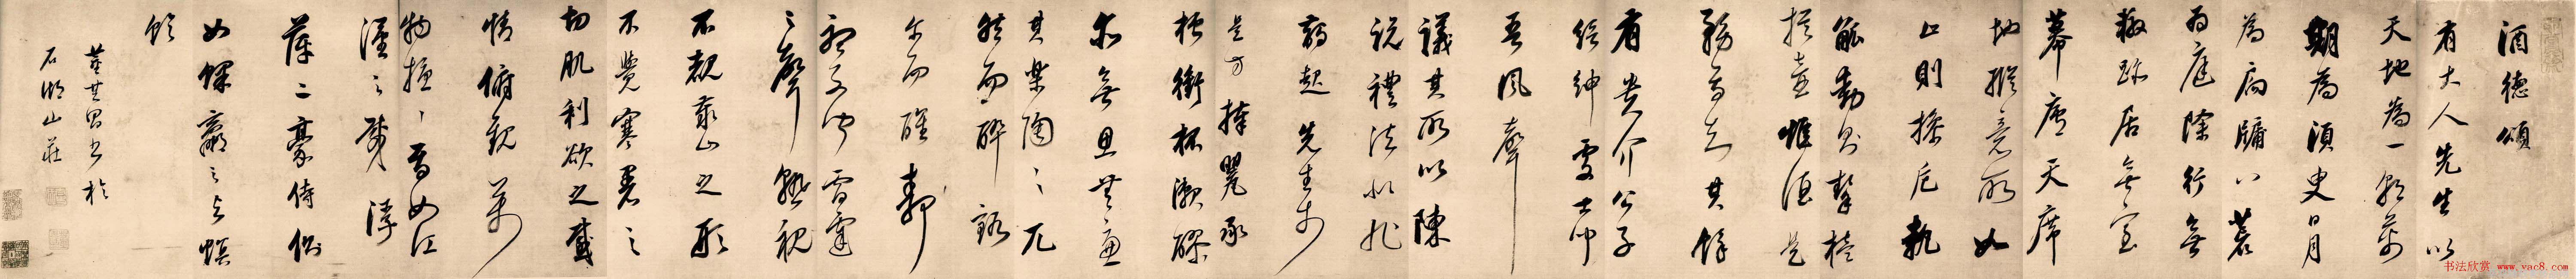 酒德頌
有大人先生以
天地為一朝萬
期為須臾日月
為扃牖八荒
為庭除行無
轍跡居無室
幕廬天席
地縱意所如
止則操卮執
觚動則挈榼
提壺惟酒是
務焉知其餘
有貴介公子
縉紳處士聞
吾風聲
議其所以陳
說禮法是非
鋒起先生於
是方捧罌承
槽銜杯漱醪
無思無慮
其樂陶陶兀
然而醉豁
尔而醒靜
聽不聞雷霆
之聲熟視
不覩泰山之形
不覺寒暑之
切肌利欲之感
情俯觀萬
物擾擾焉如江
漢之載浮
萍二豪侍側
如蜾蠃之與螟
蛉
董其昌書於
石湖山莊
书法欣赏 www.yac8.com